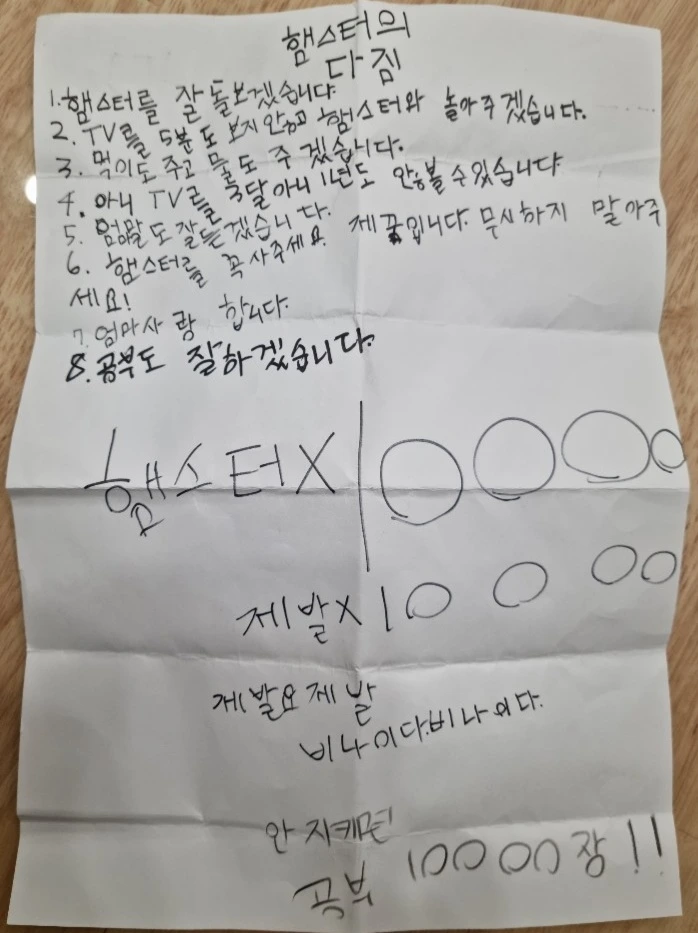 햄스터의
다짐
1. 햄스터를 잘 돌보겠습니다
2. TV를 5분도 보지안농고 햄스터와 놀아주겠습니다.
3. 먹이도 주고 물도 주겠습니다.
4. 아니 TV를 3달아니 1년도 안볼수있습니다
5. 엄말도잘듣겠습니다.
6. 햄스터를 꼭사주세요. 제꿈입니다. 무시하지 말아주
세요!
7. 엄마사랑 합니다.
8. 공부도 잘하겠습니다.
햄스터X10000
제발X10000
제발요제발
비나이다.비나이다.
안지키면!
공부 10000장!!